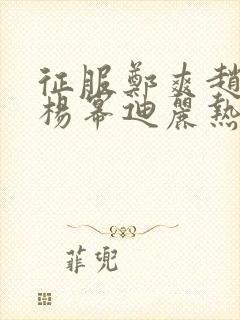 征服鄭爽趙
楊幕迪麗熱
菲兜